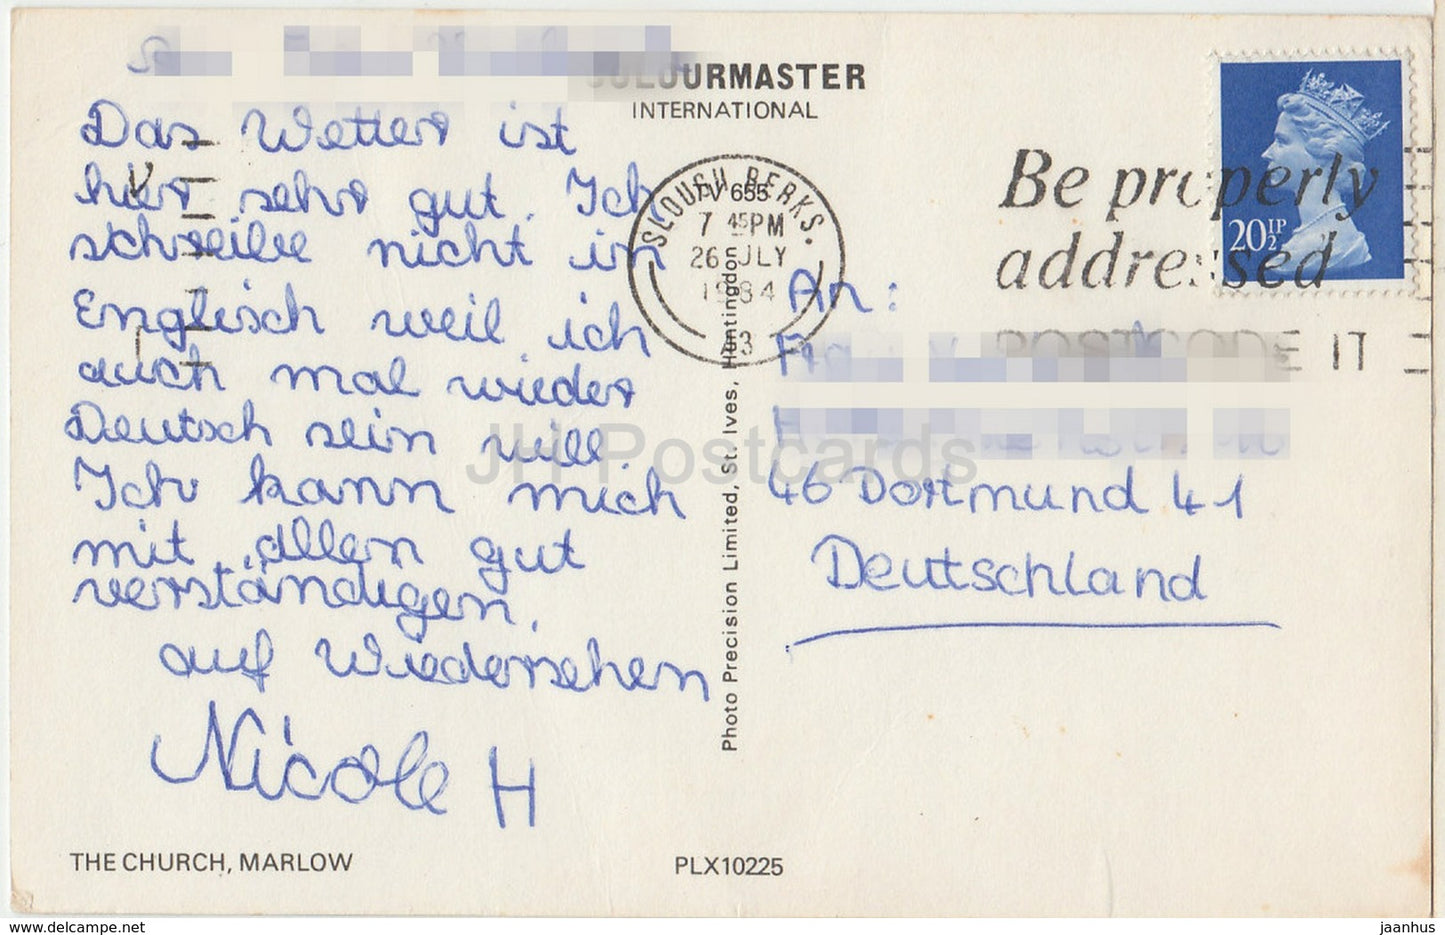 COLOURMASTER
INTERNATIONAL
Das Wetter ist
hier sehr gut. Ich
schreibe nicht in
Englisch weil ich
auch mal wieder
Deutsch sein will.
Ich kann mich
mit allen gut
verständigen.
auf Wiedersehen
Nicole H
THE CHURCH, MARLOW
PLX10225
Photo Precision Limited, St. Ives, Huntingdon
SLOUGH BERKS.
PV 655
7 45 PM
26 JLY
1984
Be properly
addressed
POSTCODE IT
20½P
An:
46 Dortmund 41
Deutschland
JH Postcards
www.delcampe.net
jaanhus